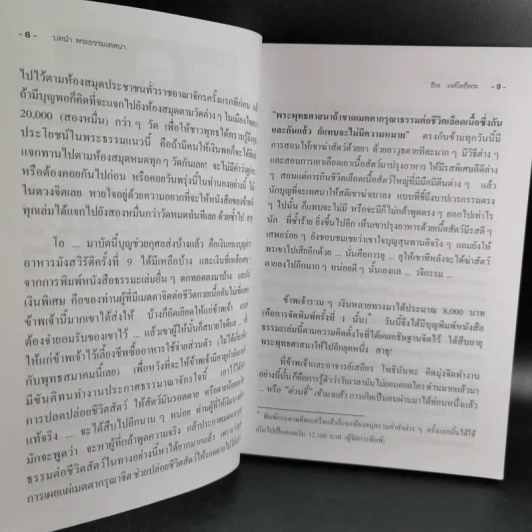 - 8 - บทนำ พระธรรมเทศนา
ไปไว้ตามห้องสมุดประชาชนทั่วราชอาณาจักรครั้งแรกทีก่อน
ถ้ามีบุญพอก็คิดที่จะแจกไปยังห้องสมุดตามวัดต่าง ๆ ในเมืองไทย
20,000 (สองหมื่น) กว่า ๆ วัด เพื่อให้ชาวพุทธได้ทราบรู้ถึง
ประโยชน์ในพระธรรมแนวนี้ คือถ้ามีคนให้เงินพอก็จะได้
แจกทานไปตามห้องสมุดหมดทุก ๆ วัดกันเลย! จะไม่มีคำว่า
หรือต้องคอยกันไปก่อน หรือคอยวันพรุ่งนี้ในท่านองอย่างนี้
ในดวงจิตเลย หายใจอยู่ด้วยความอยากที่จะให้หนังสือของ
ทุกเล่มได้แจกไปยังสองหมื่นกว่าวัดหมดทันทีเลย ด้วยซ้ำไป
โอ ... มาบัดนี้บุญช่วยกุศลส่งบ้างแล้ว คือเงินกองบุญ
อาหารมังสวิรัติครั้งที่ 9 ได้มีเหลือบ้าง และเงินที่เหลือ
จากการพิมพ์หนังสือธรรมะเล่มอื่น ๆ ตกทอดลงมาบ้าง และมี
เงินพิเศษ คือของท่านผู้ที่มีเมตตาจิตต่อชีวิตกายเนื้ออันไม่
ข้าพเจ้านี้มากเขาได้ส่งให้ บ้างก็ยัดเยียดให้แก่ข้าพเจ้า
ต้องจำยอมรับของเขาไว้ ... แล้วเขาผู้ให้นั้นก็สบายใจ
ให้แก่ข้าพเจ้าไว้เลี้ยงชีพซื้ออาหารใช้จ่ายส่วนตัว
กับพุทธสมาคมนี้เลย) เพื่อหวังที่จะให้ข้าพเจ้ามีอายุ
มีขันติทนทำงานประกาศธรรมมาอาณาจักรใจนี้ เอาไว้
การปลดปล่อยชีวิตสัตว์ ให้สัตว์มันรอดตาย
แท้จริง ... จะได้สืบไปอีกนาน ๆ หน่อย ท่านผู้ที่ให้
มักจะพูดว่า จะหาผู้ที่กล้าพูดความจริง กล้าประกาศ
ธรรมต่อชีวิตสัตว์ในทางอย่างนี้หาได้ยากมากแล้ว
การเผยแผ่เมตตากรุณาจิต ช่วยปล่อยชีวิตสัตว์ให้รอดตาย
ธีระ วงศ์โพธิ์พระ - 9 -
"พระพุทธศาสนาถ้าขาดเมตตากรุณาธรรมต่อชีวิตเลือดเนื้อซึ่งกัน
และกันแล้ว ก็แทบจะไม่มีความหมาย" ตรงกันข้ามทุกวันนี้มี
การสอนให้เขาฆ่าสัตว์ด้วยยา ด้วยอาวุธตายทีละมาก ๆ มีวิธีต่าง ๆ
และสอนการเอาเลือดเอาเนื้อสัตว์มาปรุงอาหาร ให้มีรสพิเศษดีต่าง
ๆ สอนแต่การชีวิตเลือดเนื้อสัตว์ใหญ่ที่มีมือมีตีนต่าง ๆ แล้ว
นักบุญที่จะเทศนาให้สติเขาฆ่าเบาลง แบบที่ชี้ถึงบาปเวรกรรมตรง
ๆ ไปนั้น ก็แทบจะไม่มี หรือจะมีก็ไม่กล้าพูดตรง ๆ ออกไปเท่าไร
นัก ที่ซ้ำร้าย ยิ่งขึ้นไปอีก เห็นเขาปรุงอาหารด้วยเนื้อสัตว์มีรสดี ๆ
เสพอร่อย ๆ ยังชอบชมเชยว่าเขาใจบุญสุนทานดีจริง ๆ แถมยังให้
พรเขาไปเสียอีกด้วย ... นั่นคือการยุ ... ยุให้เขาทีหลังจะได้ฆ่าสัตว์
ตายลงไปอีกมาก ๆ หน่อยดี ๆ นั้นเองแล ... วจีกรรม ...
ข้าพเจ้ารวม ๆ เงินหลายทางมาได้ประมาณ 8,000 บาท
(คือการจัดพิมพ์ครั้งที่ 1 นั้น)* วันนี้จึงได้มีบุญพิมพ์หนังสือ
ธรรมะเล่มนี้ตามความคิดตั้งใจที่ได้เคยอธิษฐานจิตไว้ ได้สืบอายุ
พระพุทธศาสนาให้ไปอีกยุคหนึ่ง สาธุ!
ที่ข้าพเจ้าและอาจารย์เสถียร โพธินันทะ คิดมุ่งจิตทำงาน
อย่างนี้นั้นก็คือการรู้ตัวว่าวันเวลามันไม่ยอมคอยใคร ด่วนมาแล้วมา
... หรือ "ด่วนชี้" เข้ามาแล้ว การเกิดเป็นคนผ่านมาได้ท่อนหนึ่งแล้ว
* พิมพ์กระดาษดีพอเสร็จแล้วเก็บห้องสมุดรวมค่าส่งต่าง ๆ ครั้งแรกนั้นได้ใช้
เงินไปเป็นยอดเงิน 12,100 บาท (ผู้จัดการพิมพ์)